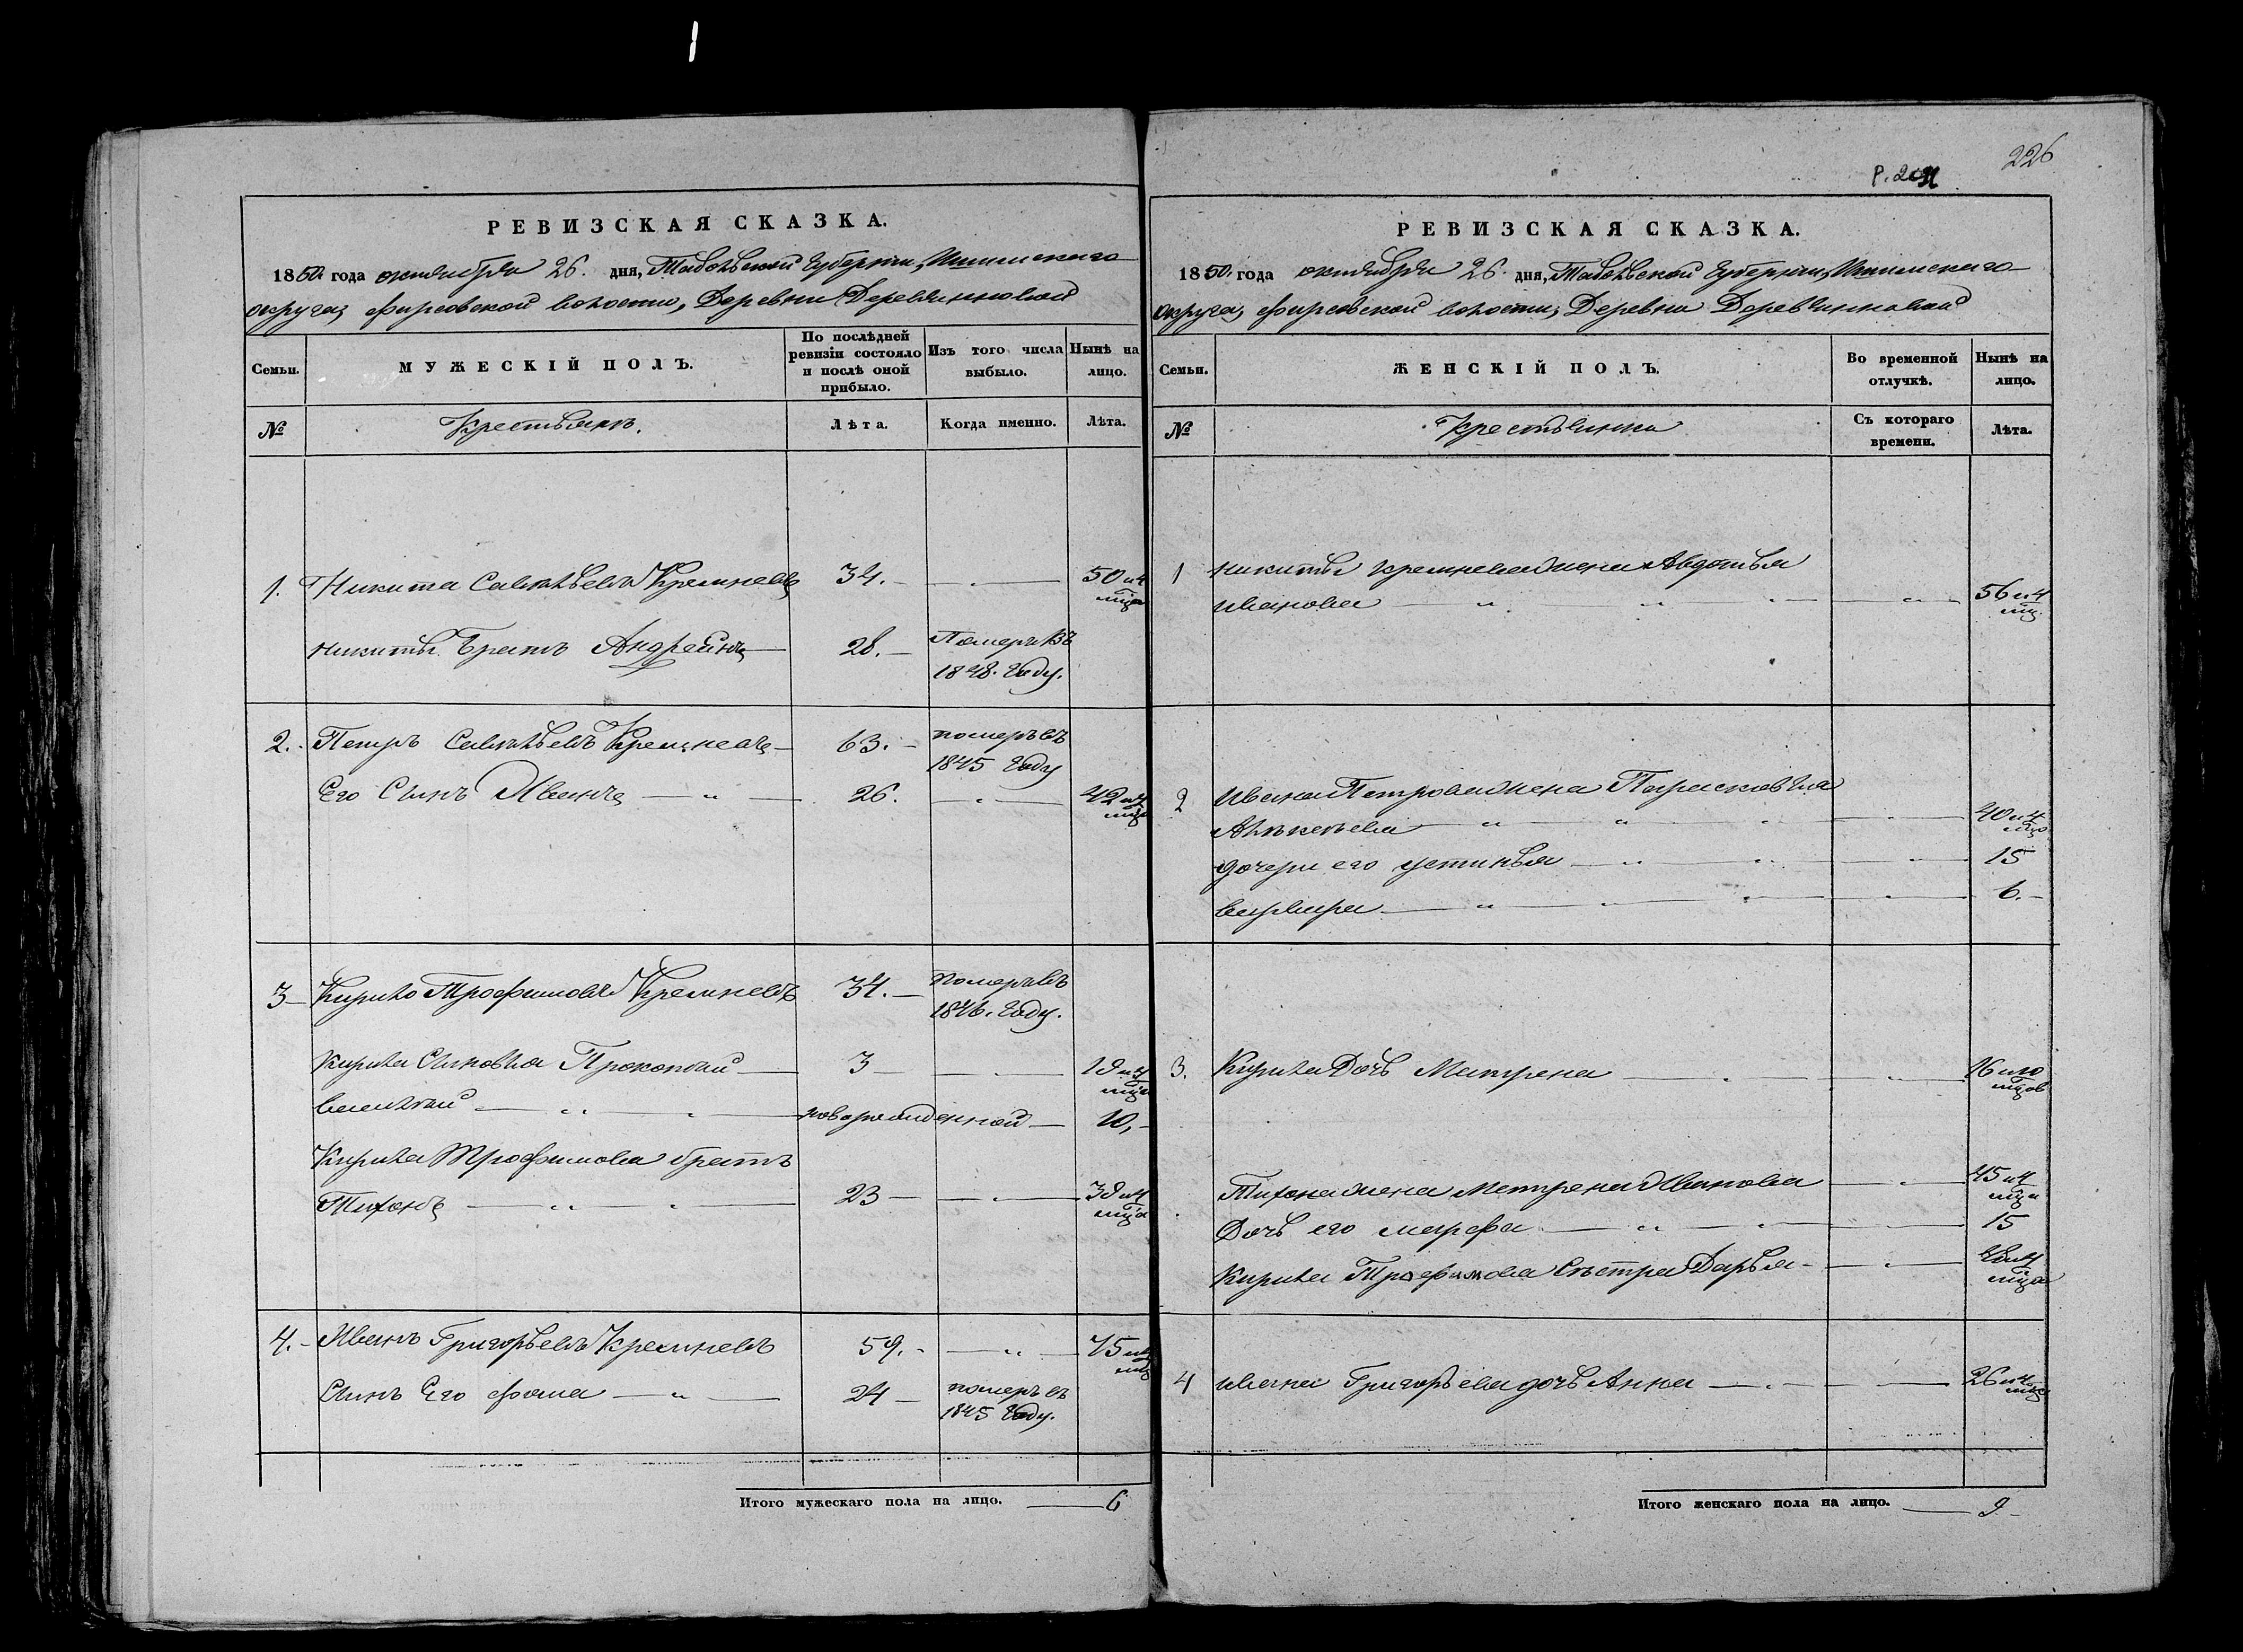 226
РЕВИЗСКАЯ СКАЗКА.
1850 года октября 26. дня, Тобольской Губернии, Ишимскаго
округа, Фирсовской волости, Деревни Деревянновой
Семьи. МУЖЕСКІЙ ПОЛЪ. По послѣдней ревизіи состояло и послѣ оной прибыло. Изъ того числа выбыло. Нынѣ на лицо.
№ Крестьянъ. Лѣта. Когда именно. Лѣта.
1. Никита Савельевъ Кремневъ 34. 50 и 4 мца
Никиты Братъ Андрей 28. Померъ въ
1848. Году.
2. Петръ Савельевъ Кремневъ 63. померъ въ
1845 Году
Его Сынъ Иванъ 26. 42 и 4 мца
3 Кирило Трофимовъ Кремневъ 34. померъ въ
1846. Году.
Кирила Сыновья Прокопей 3 19 и 4 мца
новорожденной 10,
Кирила Трофимова братъ
Тихонъ 23 39 и 4 мца
4. Иванъ Григорьевъ Кремневъ 59. 75 и 4 мца
Сынъ Его Фома 24 померъ въ
1845 Году.
Итого мужескаго пола на лицо. 6
РЕВИЗСКАЯ СКАЗКА.
1850 года октября 26 дня, Тобольской Губернии, Ишимскаго
округа, Фирсовской волости, Деревни Деревянновой
Семьи. ЖЕНСКІЙ ПОЛЪ. Во временной отлучкѣ. Нынѣ на лицо.
№ Крестьянки Съ котораго времени. Лѣта.
1 Никиты Кремнева жена Авдотья
Иванова 56 и 4 мц.
2 Ивана Петрова жена Парасковья
Алексеева 40 и 4 мца
дочери его устинья 15
варвара 6.
3. Кирила Дочь Матрена 16 и 10 мцов
Тихона жена Матрена Иванова 45 и 4 мца
Дочь его марфа 15
Кирила Трофимова Сестра Дарья
4 Ивана Григорьева дочь Анна 26 и 4 мца
Итого женскаго пола на лицо. 9